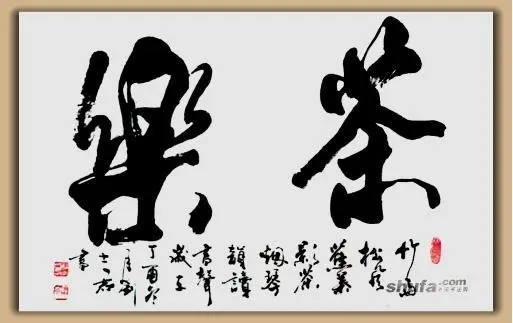 茶樂
竹雨
松風
蕉葉
影茶
烟琴
韻讀
書聲
歲在
丁酉冬
書
shufa.com